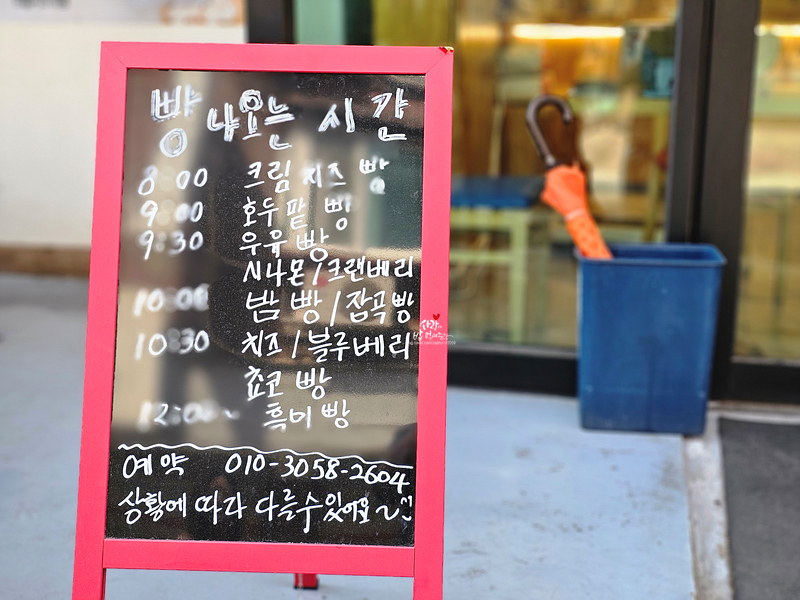 빵 나오는 시간
8:00 크림치즈 빵
9:00 호두 팥 빵
9:30 우유 빵
시나몬/크랜베리
10:00 밤 빵/잡곡빵
10:30 치즈/블루베리
쵸코 빵
12:00~ 흑미 빵
예약 010-3058-2604
상황에 따라 다를수있어요~^^